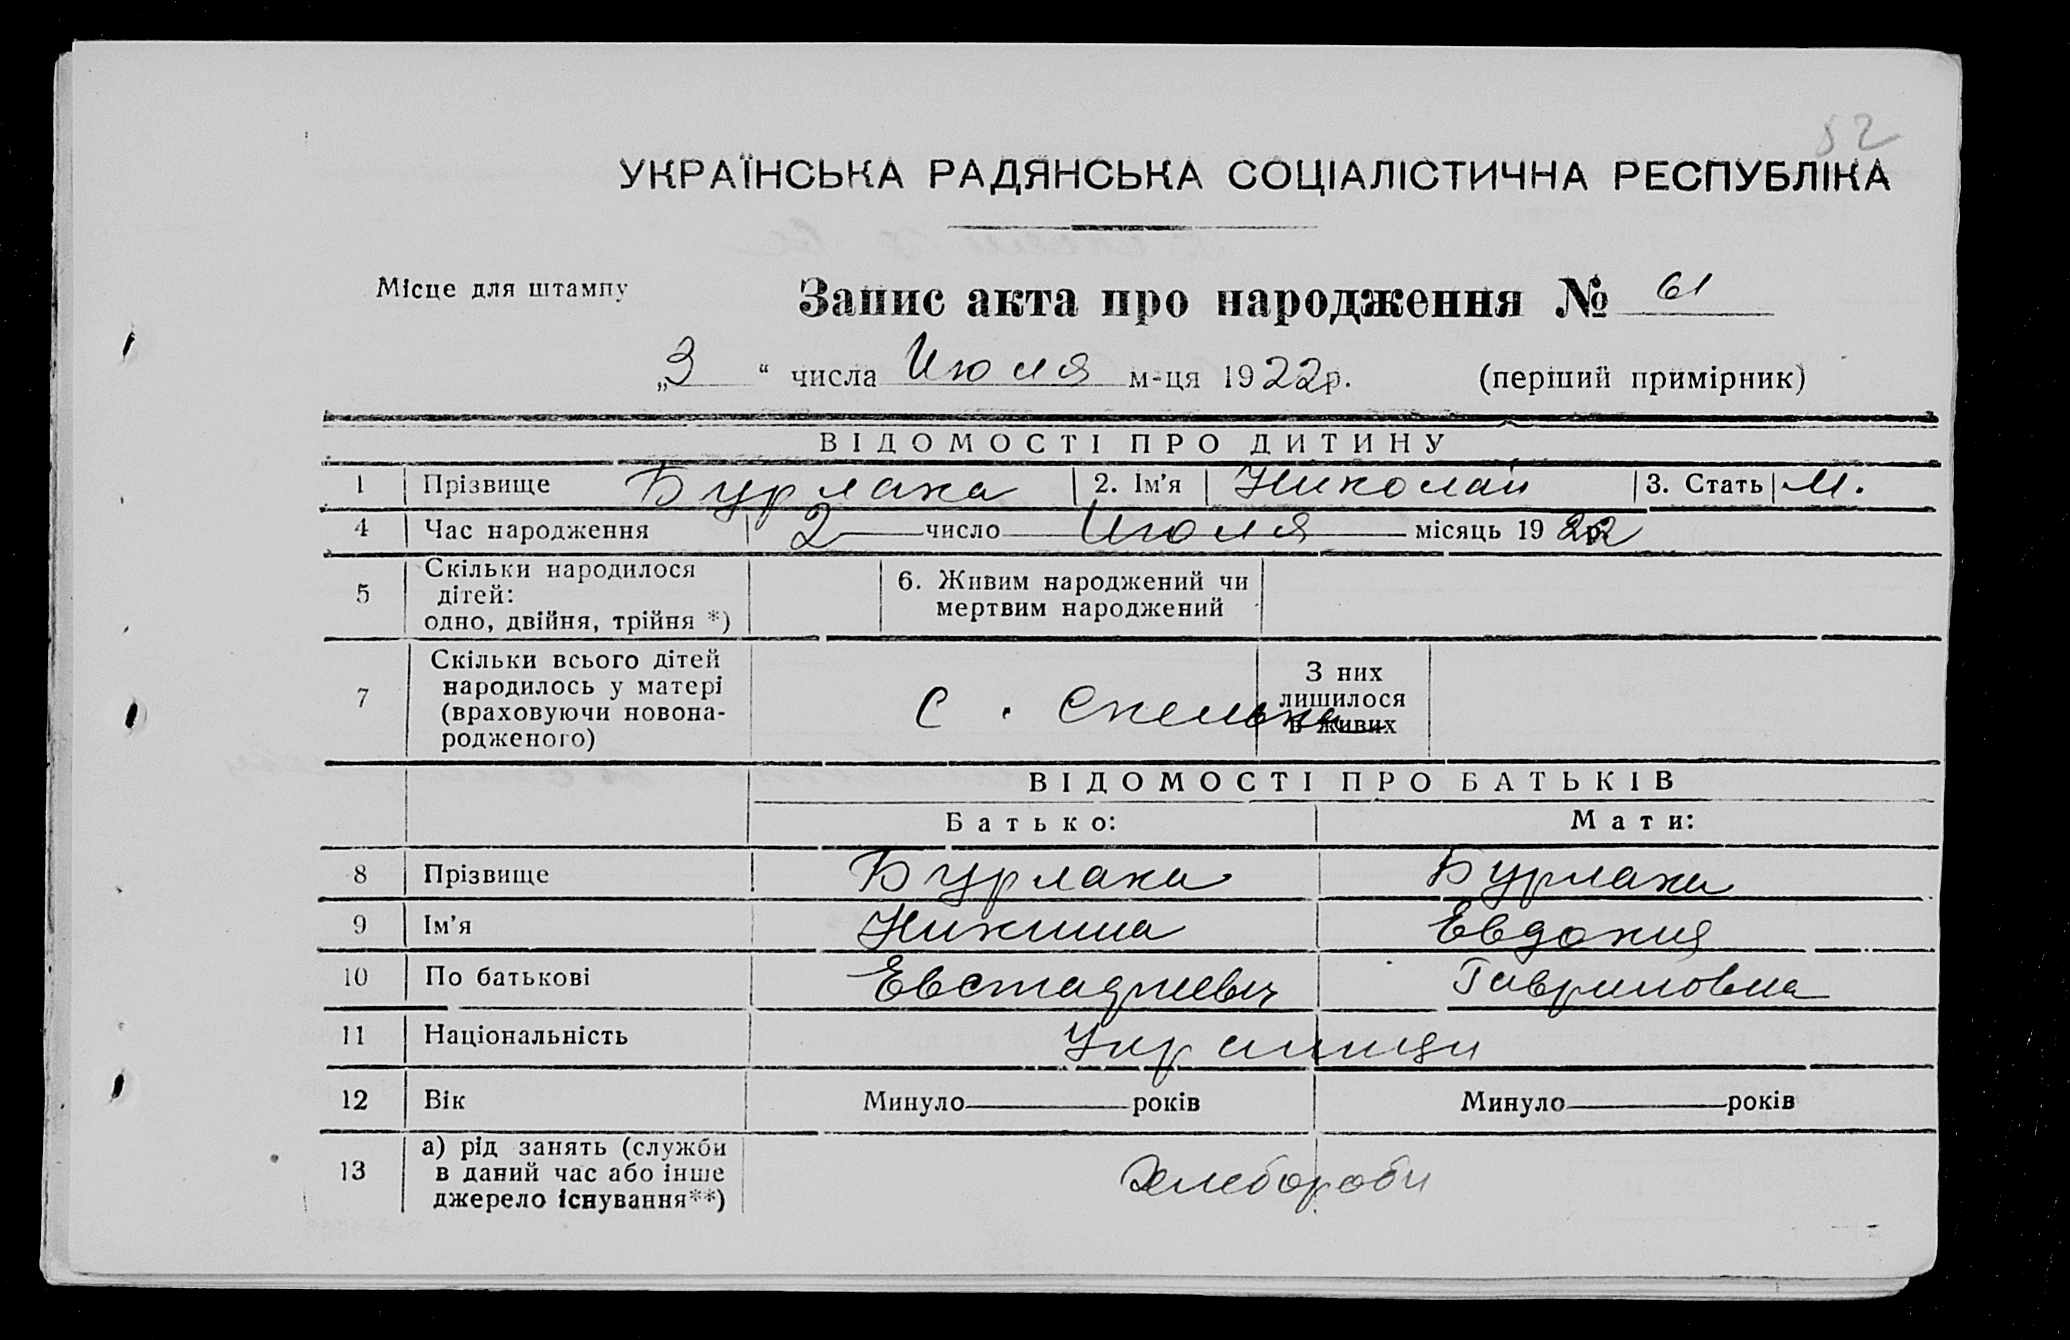 52
УКРАЇНСЬКА РАДЯНСЬКА СОЦІАЛІСТИЧНА РЕСПУБЛІКА
Місце для штампу
Запис акта про народження № 61
„3“ числа Июля м-ця 1922р. (перший примірник)
ВІДОМОСТІ ПРО ДИТИНУ
1 Прізвище Бурлака 2. Ім'я Николай 3. Стать М.
4 Час народження 2 число Июля місяць 1922
5 Скільки народилося дітей: одно, двійня, трійня *) 6. Живим народжений чи мертвим народжений
7 Скільки всього дітей народилось у матері (враховуючи новонародженого) с. Скельки З них лишилося в живих
ВІДОМОСТІ ПРО БАТЬКІВ
Батько: Мати:
8 Прізвище Бурлака Бурлака
9 Ім'я Никита Евдокия
10 По батькові Евстадиевич Гавриловна
11 Національність Украинци
12 Вік Минуло років Минуло років
13 а) рід занять (служби в даний час або інше джерело існування**) Хлебороби